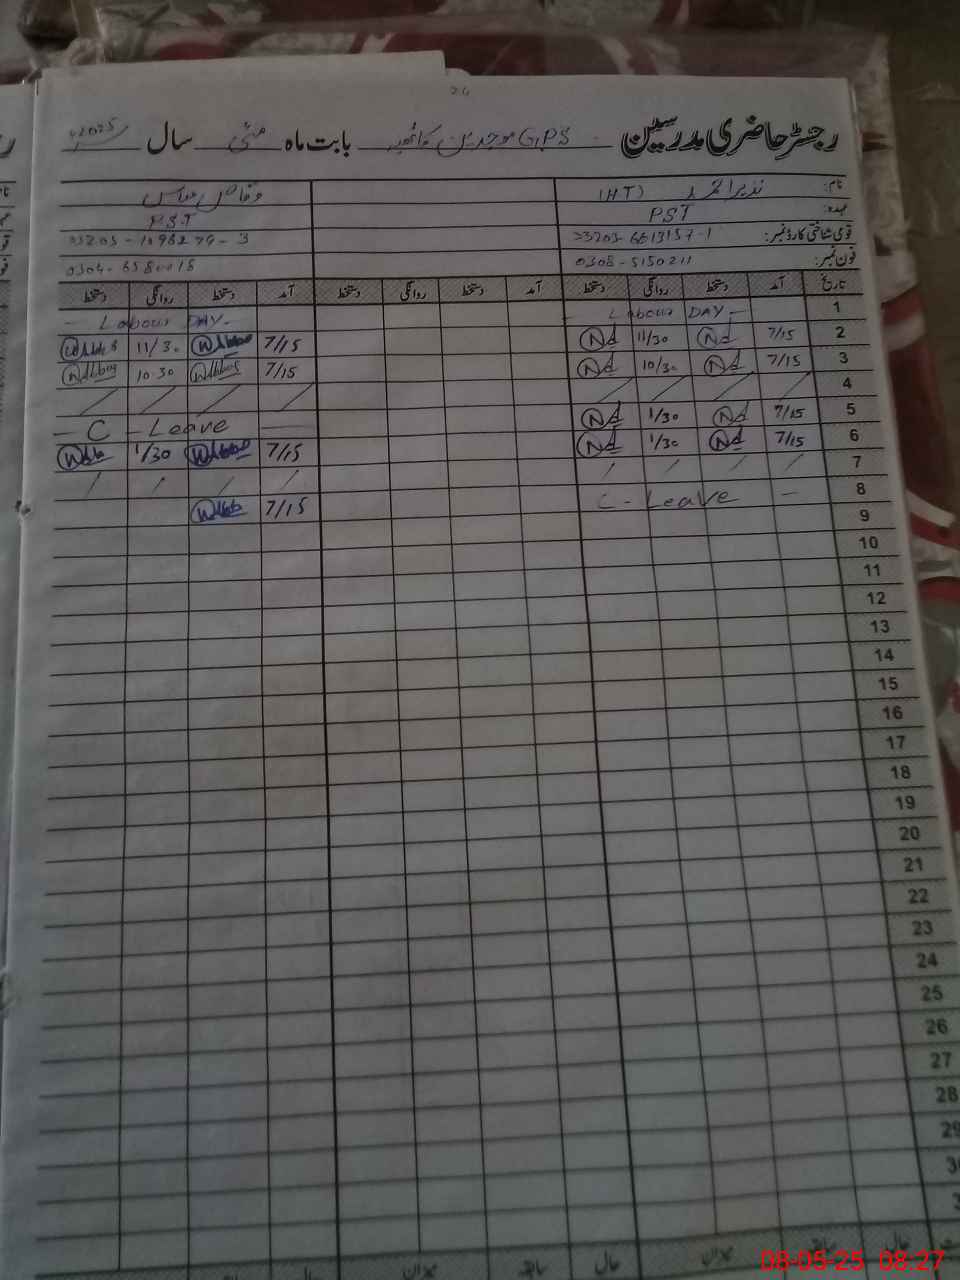 رجسٹر حاضری مدرسین GPS موجدین بابت ماہ مئی سال 2025
نام: نذیر احمد (HT) وقاص
عہدہ: PST PST
قومی شناختی کارڈ نمبر: 33203-6613157-1
فون نمبر: 0308-5150211
تاریخ آمد دستخط روانگی دستخط آمد دستخط روانگی دستخط آمد دستخط روانگی دستخط
1 - Labour DAY - - Labour DAY -
2 7/15 Nd 11/30 Nd 7/15 11/30
3 7/15 Nd 10/30 Nd 7/15 10.30
4 / / / / / / / /
5 7/15 Nd 1/30 Nd - C - Leave -
6 7/15 Nd 1/30 Nd 7/15 1/30
7 / / / / / / / /
8 C - Leave - 7/15
9
10
11
12
13
14
15
16
17
18
19
20
21
22
23
24
25
26
27
28
29
حال سابقہ میزان حال سابقہ میزان حال
08-05-25 08:27